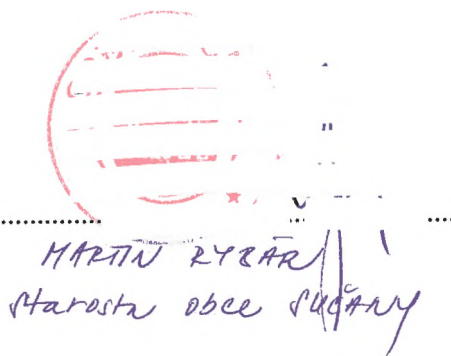 MARTIN RYBÁR
starosta obce SUČANY